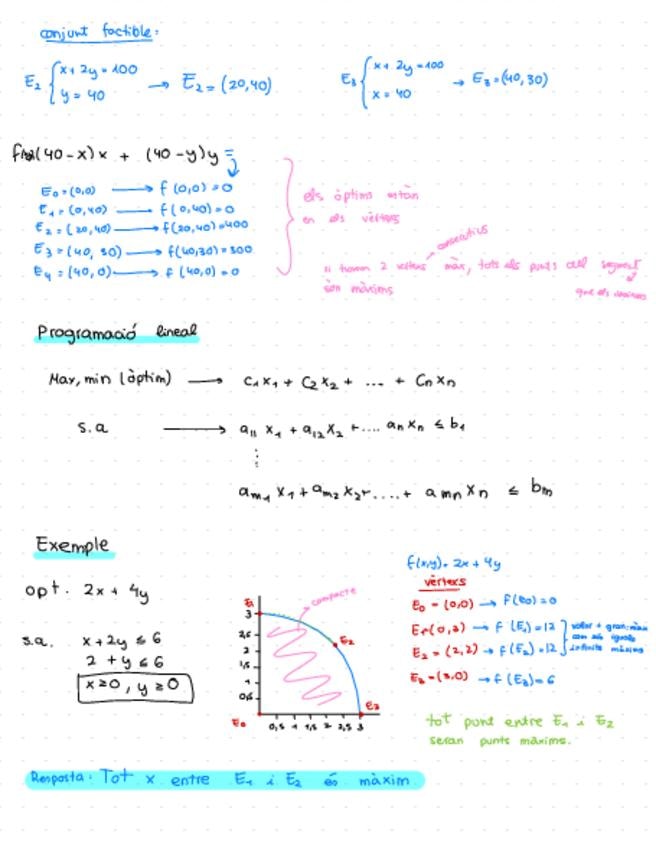 conjunt factible:
E₂ { x + 2y = 100
y = 40 → E₂ = (20,40)
E₃ { x + 2y = 100
x = 40 → E₃ = (40,30)
(40-x)x + (40-y)y =
E₀ = (0,0) → f(0,0) = 0
E₁ = (0,40) → f(0,40) = 0
E₂ = (20,40) → f(20,40) = 400
E₃ = (40,30) → f(40,30) = 300
E₄ = (40,0) → f(40,0) = 0
els òptims estàn
en els vèrtexs
consecutius
2 vertexs màx, tots els punts del segment
són màxims
que els
Programació lineal
Max, min (òptim) → C₁x₁ + C₂x₂ + ... + Cnxn
s.a → a₁₁ x₁ + a₁₂ x₂ + .... an xn ≤ b₁
⋮
am₁ x₁ + am₂ x₂ + .... + amn xn ≤ bm
Exemple
opt. 2x + 4y
s.a. x + 2y ≤ 6
2 + y ≤ 6
x ≥ 0, y ≥ 0
E₁
compacte
3
2,5
2
1,5
1
0,5
E₂
E₃
E₀
0,5 1 1,5 2 2,5 3
f(x,y) = 2x + 4y
vèrtexs
E₀ = (0,0) → f(E₀) = 0
E₁ = (0,3) → f(E₁) = 12
E₂ = (2,2) → f(E₂) = 12
E₃ = (3,0) → f(E₃) = 6
valor + gran: màx
com són iguals
infinits màxims
tot punt entre E₁ i E₂
seran punts màxims.
Resposta: Tot x entre E₁ i E₂ és màxim